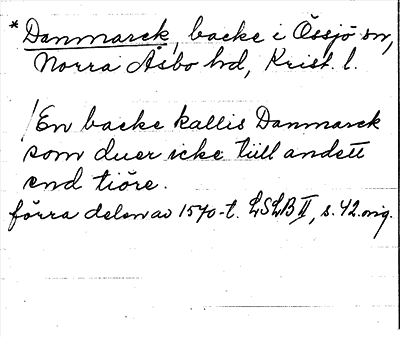 * Danmarck, backe i Össjö sn,
Norra Åsbo hd, Krist. l.
/En backe kallis Danmarck
som duer icke tiill andett
end tiöre.
förra delen av 1570-t. LSLB II, s. 42. orig.